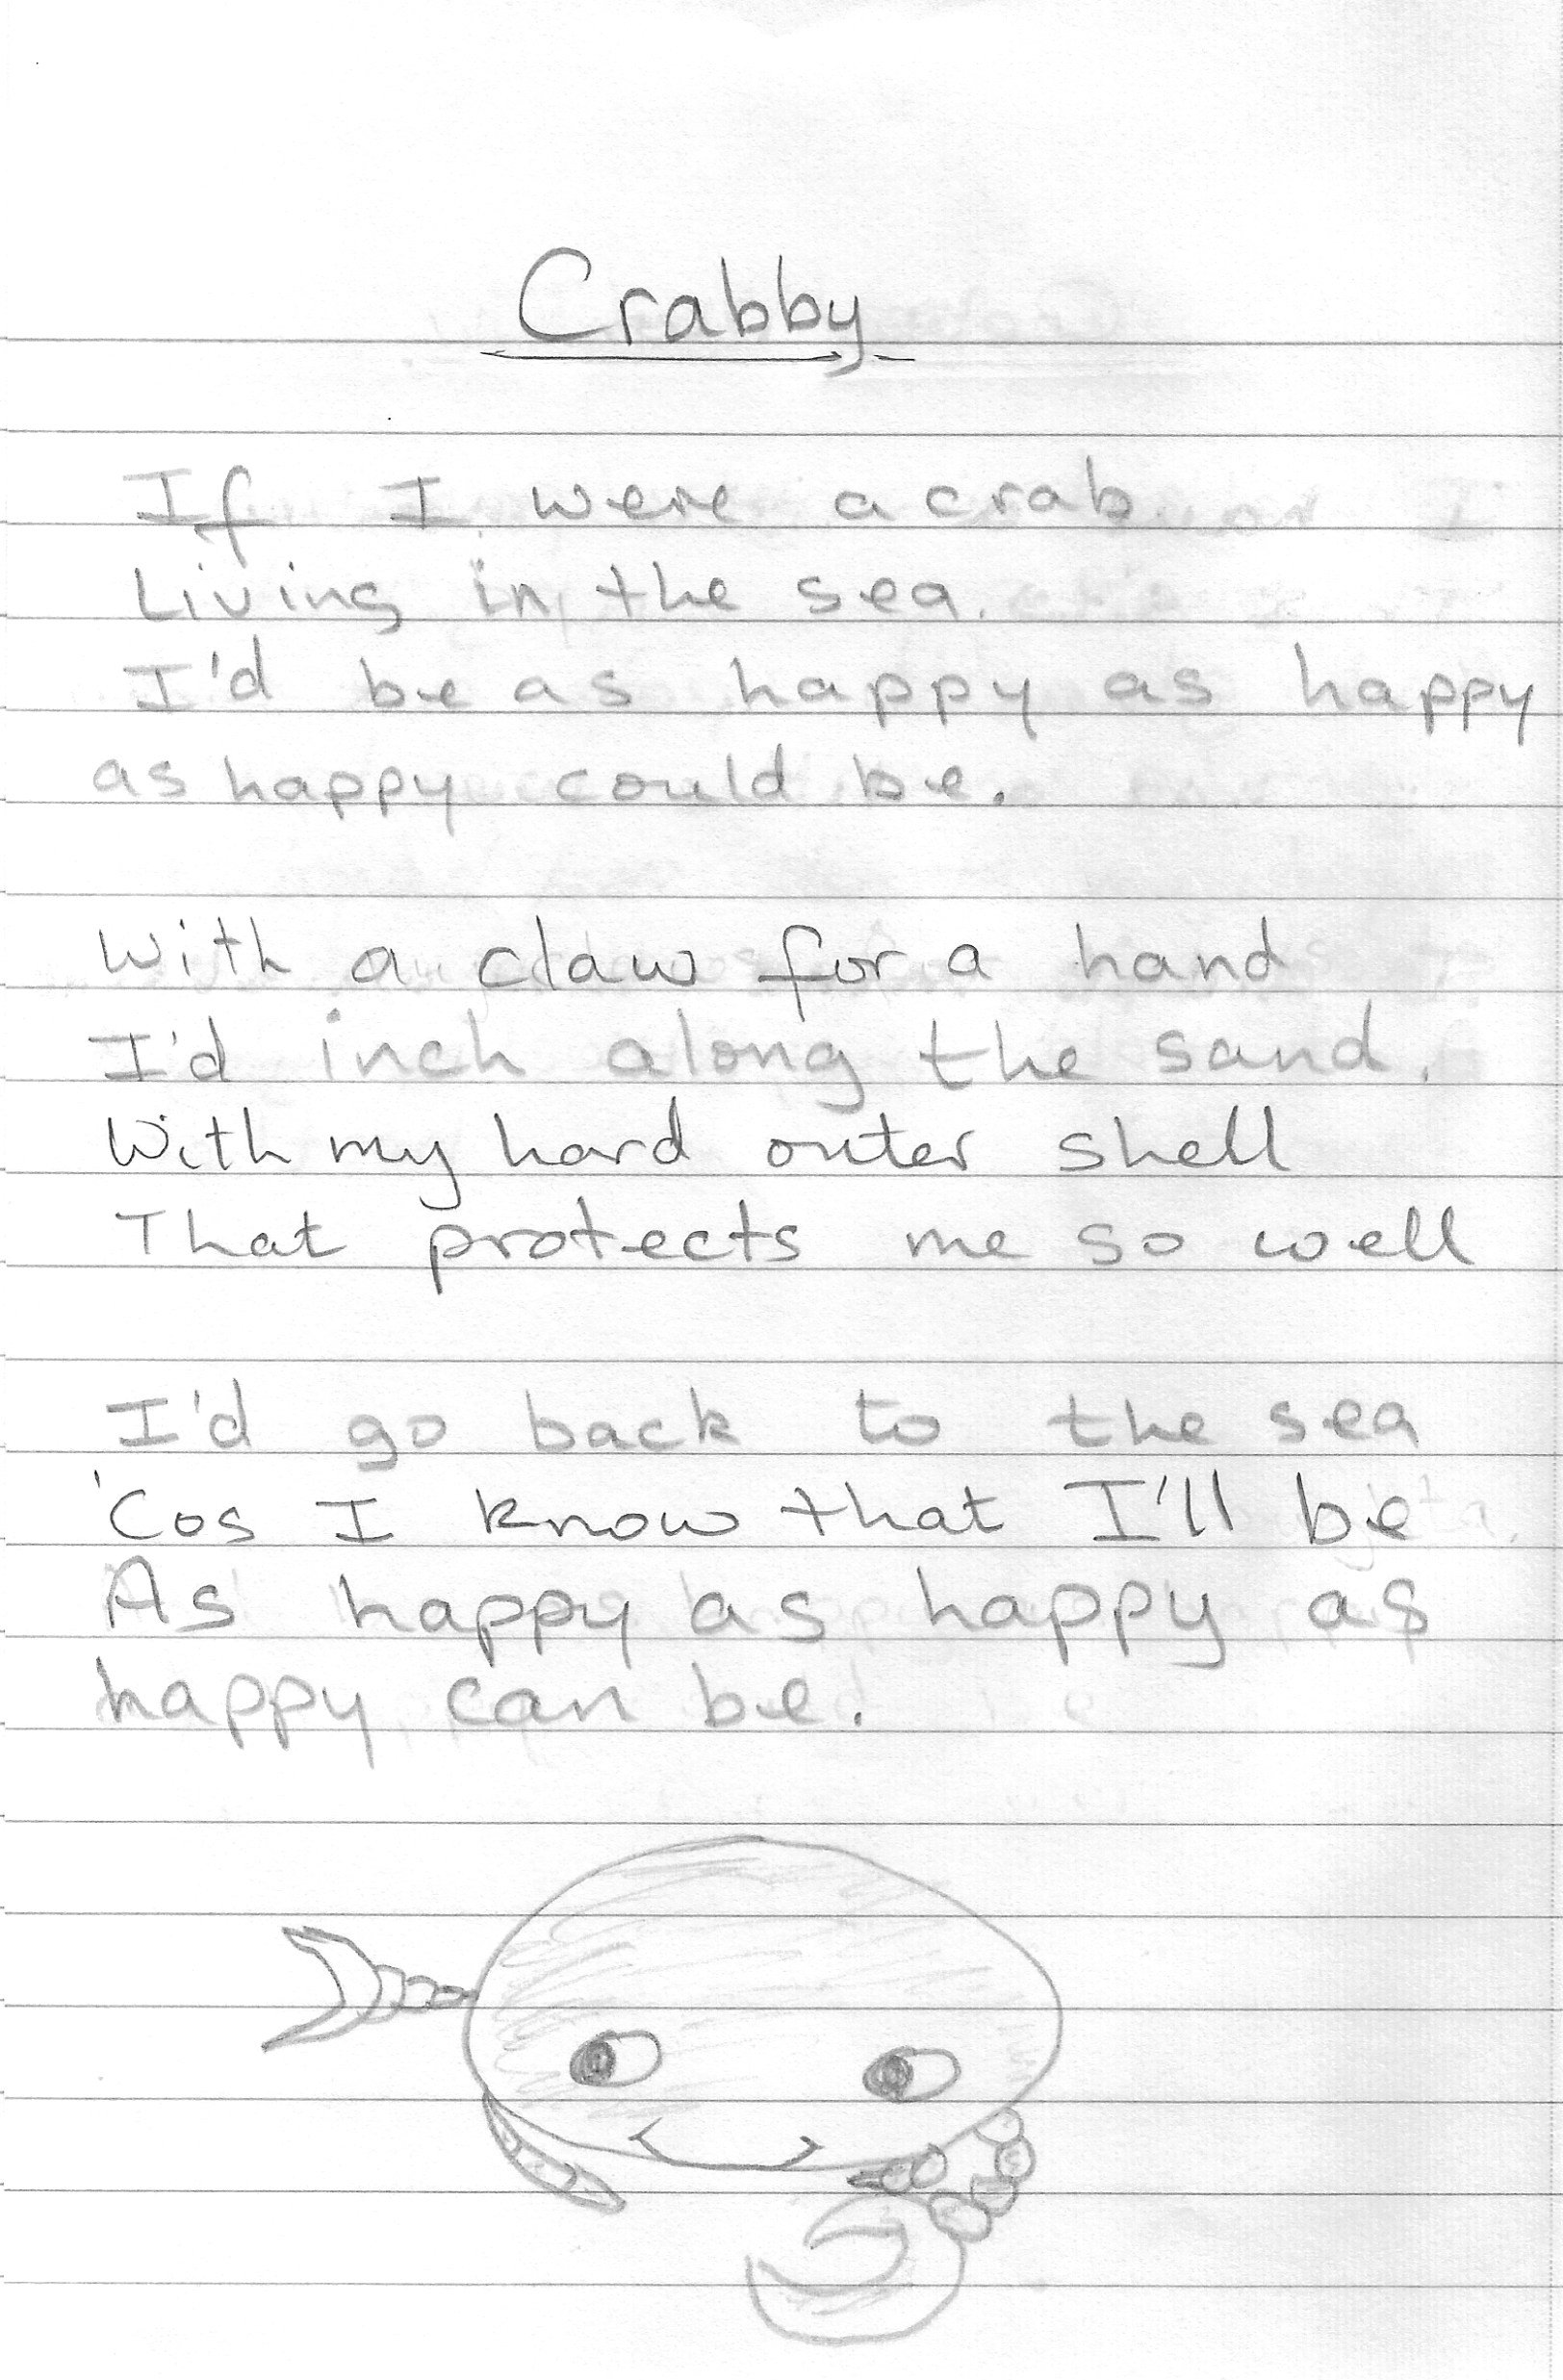 Crabby
If I were a crab
Living in the sea.
I'd be as happy as happy
as happy could be.
With a claw for a hand
I'd inch along the sand.
With my hard outer shell
That protects me so well
I'd go back to the sea
'Cos I know that I'll be
As happy as happy as
happy can be.